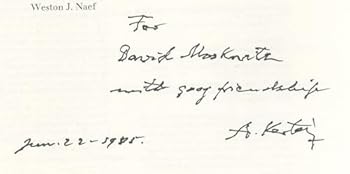 Weston J. Naef
For
David Moskowitz
with good friendship
A. Kertész
Jun. 22-1985.